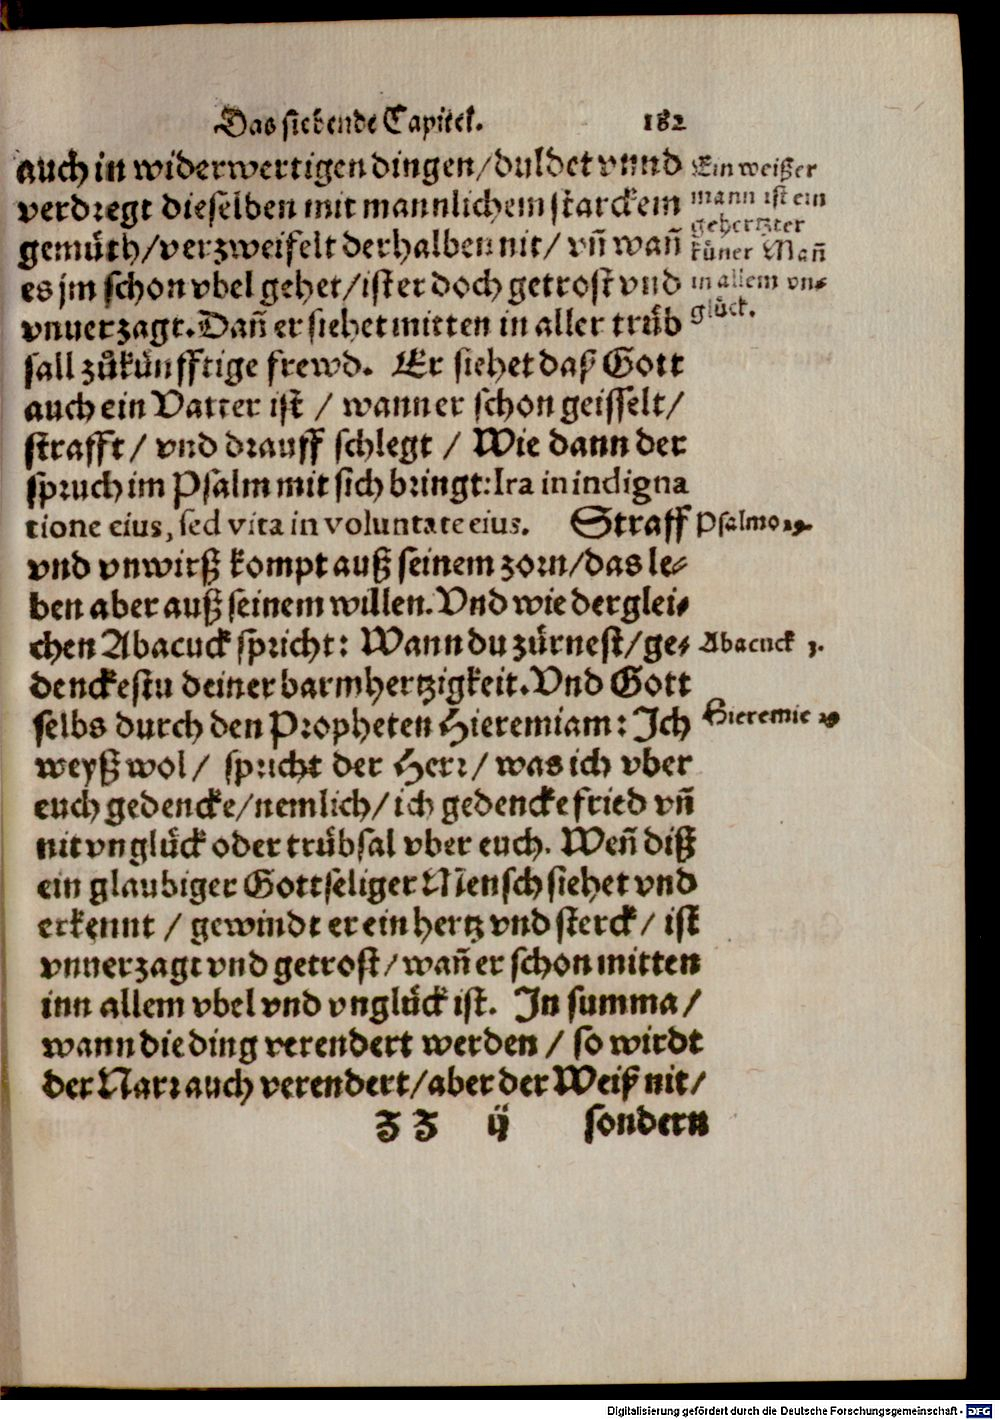 Das siebende Capitel. 182
auch in widerwertigen dingen/duldet vnnd
verdregt dieselben mit mannlichem starckem
gemuͤth/verzweifelt derhalben nit/ vñ wañ
es jm schon vbel gehet/ist er doch getrost vnd
vnuerzagt. Dañ er siehet mitten in aller truͤb
sall zůkuͤnfftige frewd. Er siehet daß Gott
auch ein Vatter ist / wann er schon geisselt/
strafft/ vnd drauff schlegt / Wie dann der
spruch im Psalm mit sich bringt: Ira in indigna
tione eius, sed vita in voluntate eius. Straff
vnd vnwirß kompt auß seinem zorn/das le-
ben aber auß seinem willen. Vnd wie derglei-
chen Abacuck spricht: Wann du zuͤrnest/ge-
denckestu deiner barmhertzigkeit. Vnd Gott
selbs durch den Propheten Hieremiam: Ich
weyß wol/ spricht der Herr/ was ich vber
euch gedencke/nemlich/ich gedencke fried vñ
nit vngluͤck oder truͤbsal vber euch. Weñ diß
ein glaubiger Gottseliger Mensch siehet vnd
erkennt / gewindt er ein hertz vnd sterck/ ist
vnuerzagt vnd getrost/wañ er schon mitten
inn allem vbel vnd vngluͤck ist. In summa/
wann die ding verendert werden / so wirdt
der Narr auch verendert/aber der Weiß nit/
Zz ij sondern
Ein weißer
mann ist ein
gehertzter
kuͤner Mañ
in allem vn-
gluͤck.
Psalmo 29.
Abacuck 3.
Hieremie 29
Digitalisierung gefördert durch die Deutsche Forschungsgemeinschaft - DFG